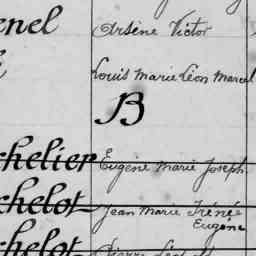 enel Arsène Victor
Louis Marie Léon Marcel
B
chelier Eugène Marie Joseph
chelot Jean Marie Irénée
Eugène
chelot Pierre